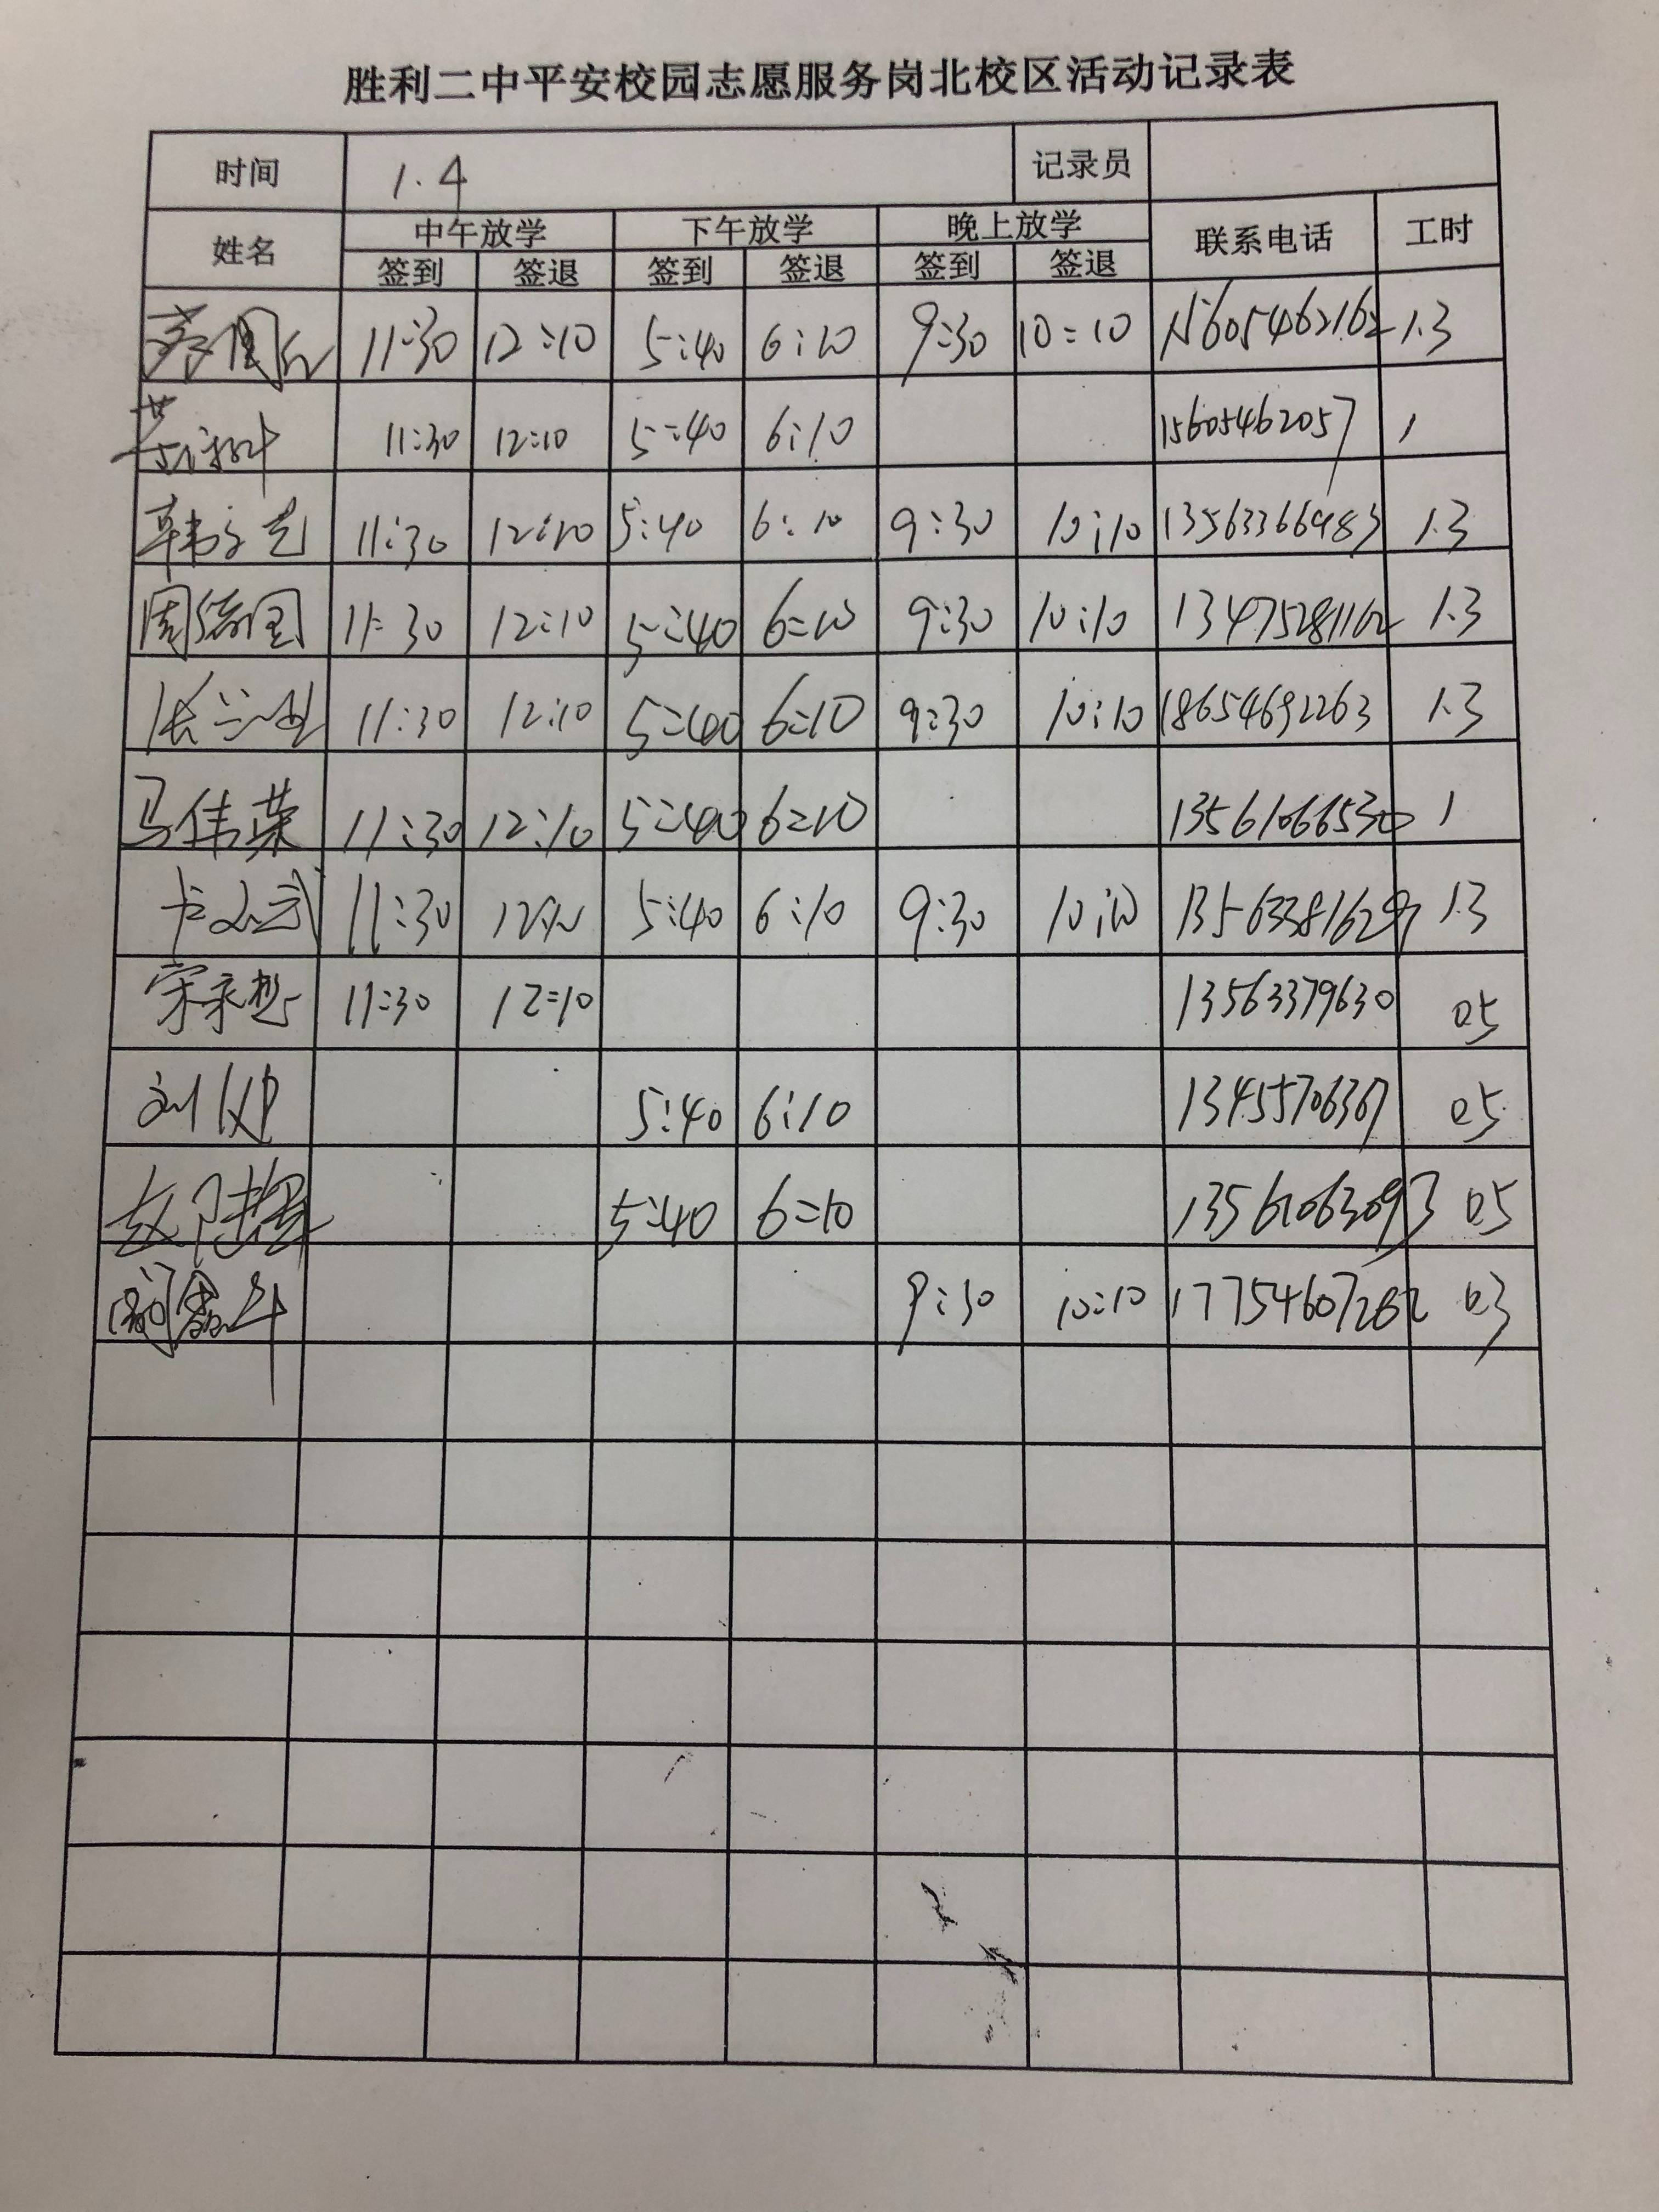 胜利二中平安校园志愿服务岗北校区活动记录表
时间 1.4 记录员
姓名 中午放学 下午放学 晚上放学 联系电话 工时
签到 签退 签到 签退 签到 签退
11:30 12:10 5:40 6:10 9:30 10:10 15605462162 1.3
11:30 12:10 5:40 6:10 15605462057 1
韩文艺 11:30 12:10 5:40 6:10 9:30 10:10 13563366983 1.3
周德国 11:30 12:10 5:40 6:10 9:30 10:10 13475281162 1.3
张兰 11:30 12:10 5:40 6:10 9:30 10:10 18654692263 1.3
马伟荣 11:30 12:10 5:40 6:10 13561066530 1
11:30 5:40 6:10 9:30 10:10 13563381629 1.3
宋永想 11:30 12:10 13563379630 0.5
刘 5:40 6:10 13455706367 0.5
赵 5:40 6:10 13561063093 0.5
9:30 10:10 17754607262 0.3